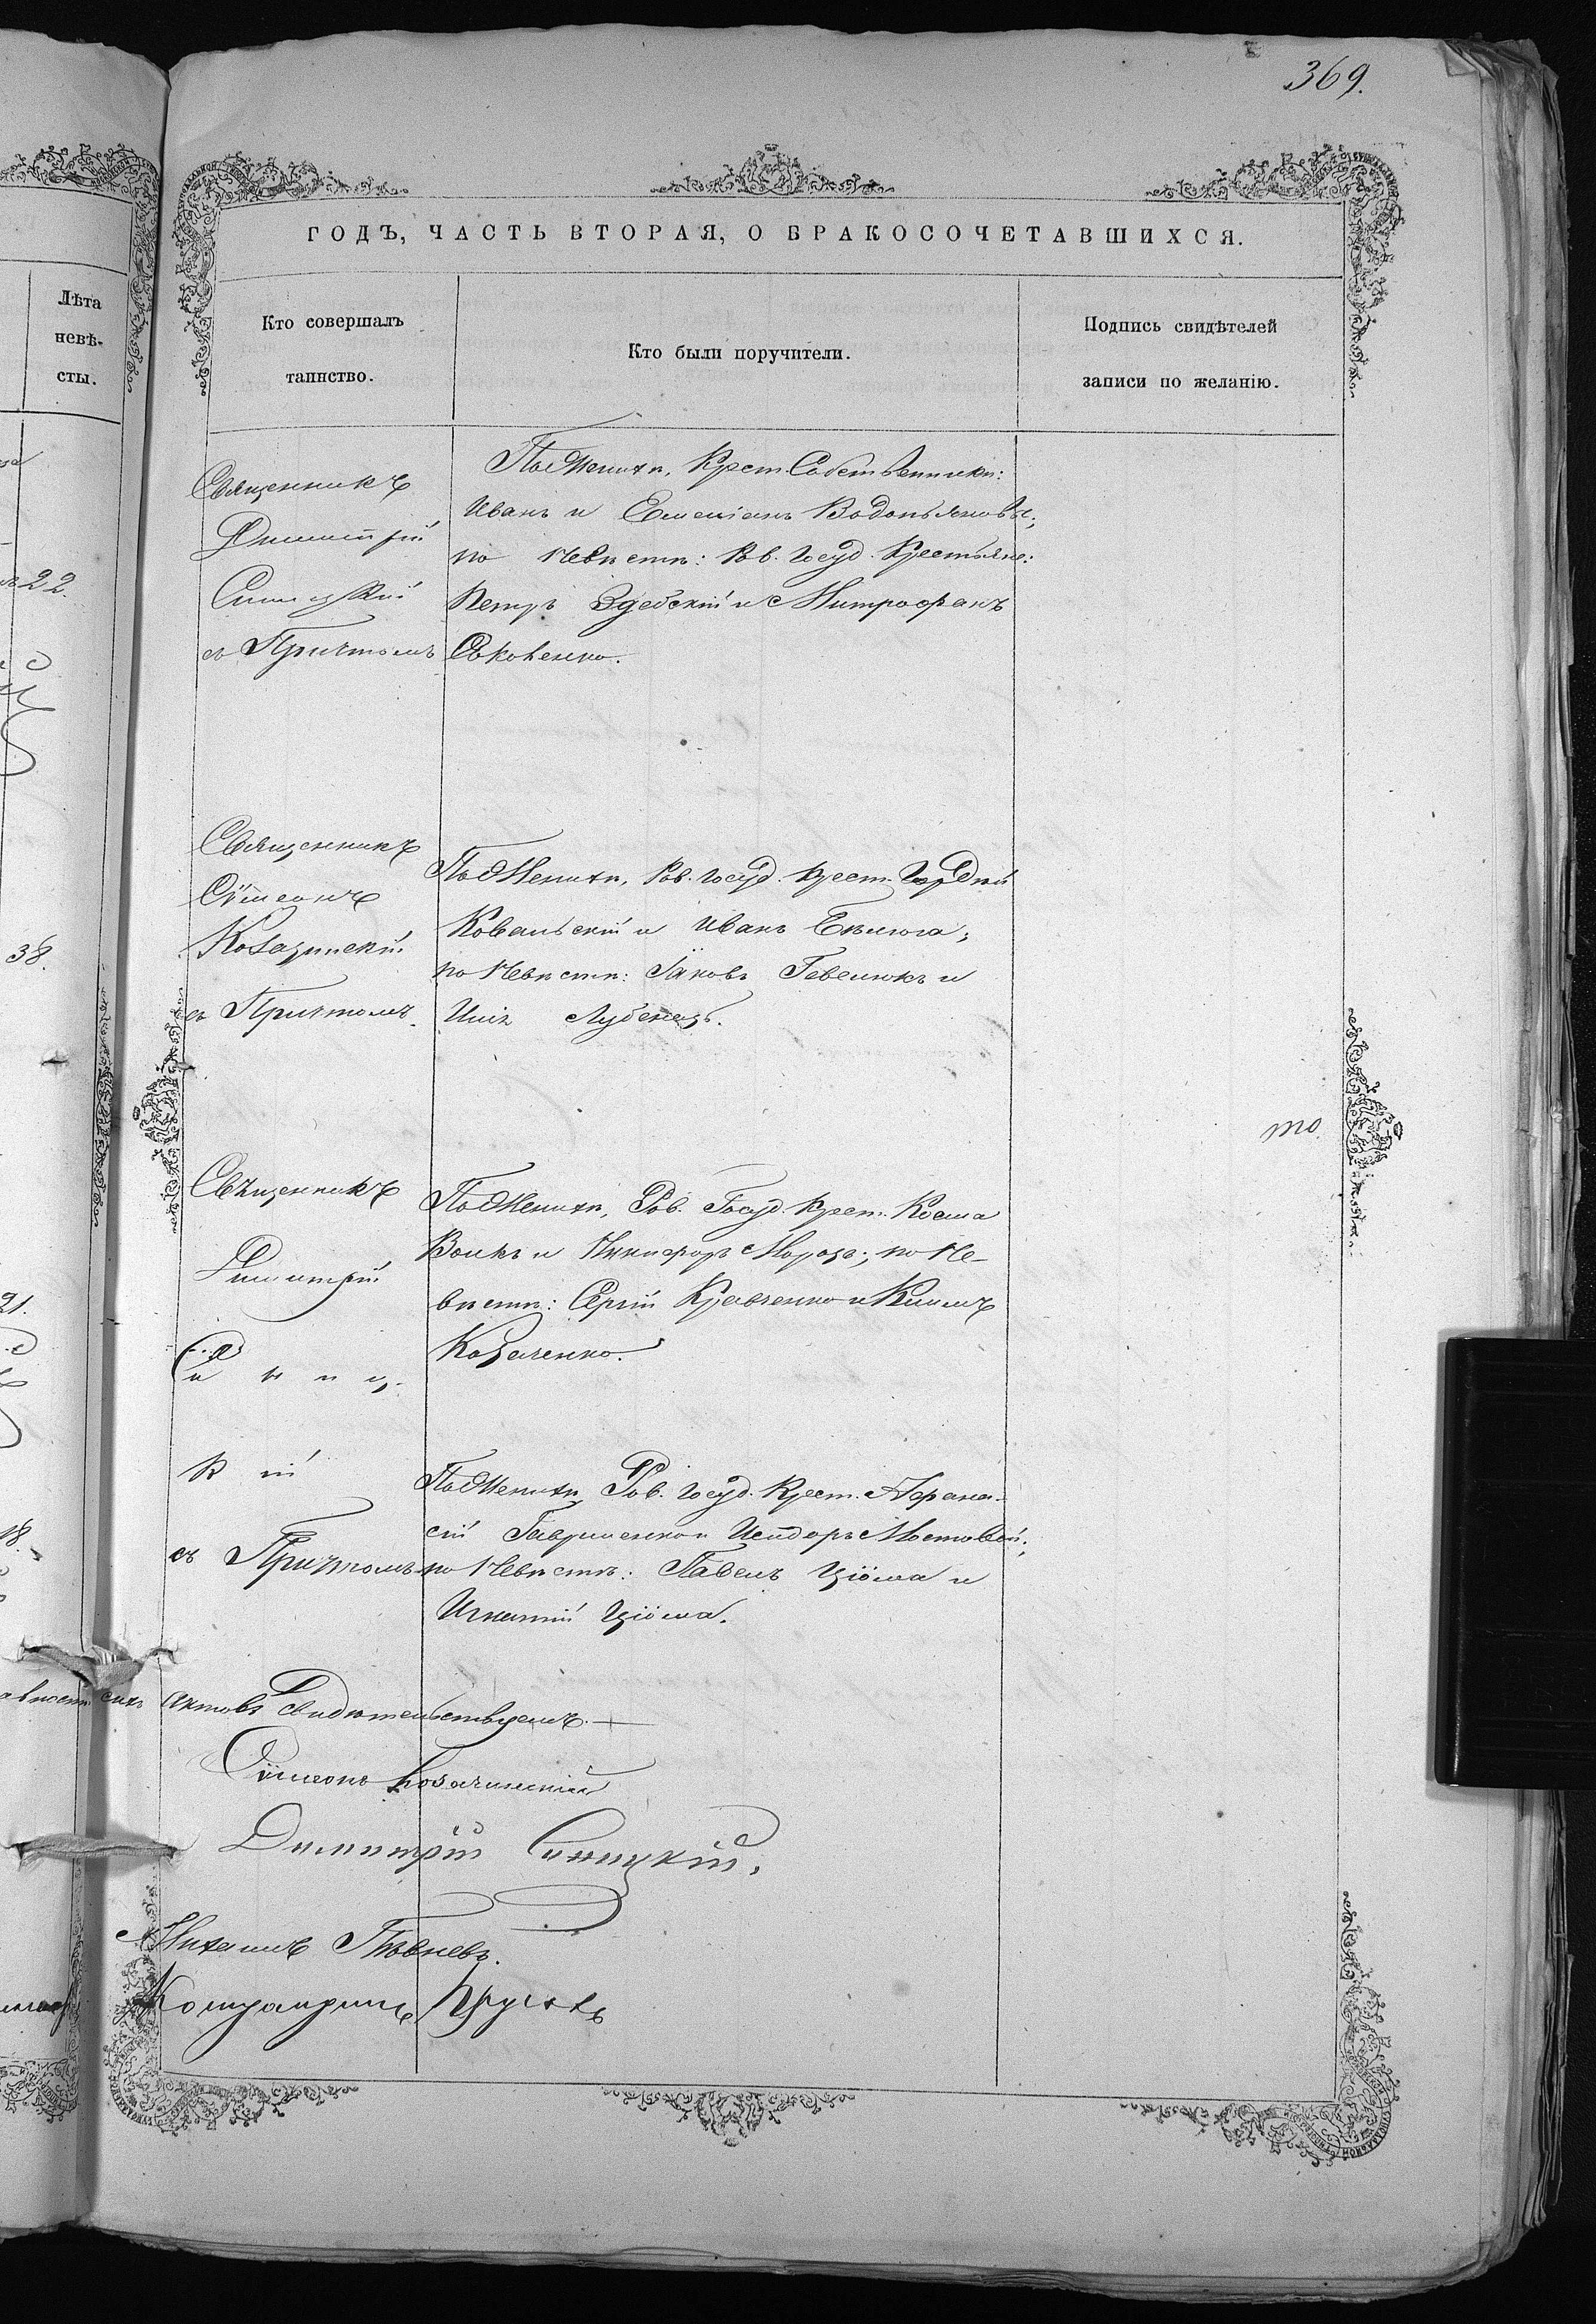 369.
ГОДЪ, ЧАСТЬ ВТОРАЯ, О БРАКОСОЧЕТАВШИХСЯ.
Лѣта
невѣ-
сты.
Кто совершалъ
таинство.
Кто были поручители.
Подпись свидѣтелей
записи по желанію.
22.
38.
21.
18.
Священникъ
Димитрій
Синицкій
съ Причтомъ
По Женихѣ, Крест. Собственники:
Иванъ и Емеліанъ Водопьяновы;
по Невѣстѣ: Рав. Госуд. Крестьяне:
Петръ Здебскій и Митрофанъ
Яковенко.
Священникъ
Сѵмеонъ
Козачинскій
съ Причтомъ.
По Женихѣ, Рав. Госуд. Крест. Гордѣй
Ковальскій и Иванъ Бѣлюга;
по Невѣстѣ: Іаковъ Гевелюкъ и
Илія Лубенецъ.
то
Священникъ
Димитрій
Синиц-
кій
съ Причтомъ
По Женихѣ, Рав. Госуд. Крест. Косма
Волкъ и Никифоръ Морозъ; по Не-
вѣстѣ: Сергій Кравченко и Климъ
Козаченко.
По Женихѣ Рав. Госуд. Крест. Афана-
сій Гавриленко и Исидоръ Мостовой;
по Невѣстѣ: Павелъ Цюма и
Игнатій Цюма.
сихъ актовъ свидѣтельствуемъ.
Сѵмеонъ Козачинскій
Димитрій Синицкій.
Михаилъ Пѣвневъ.